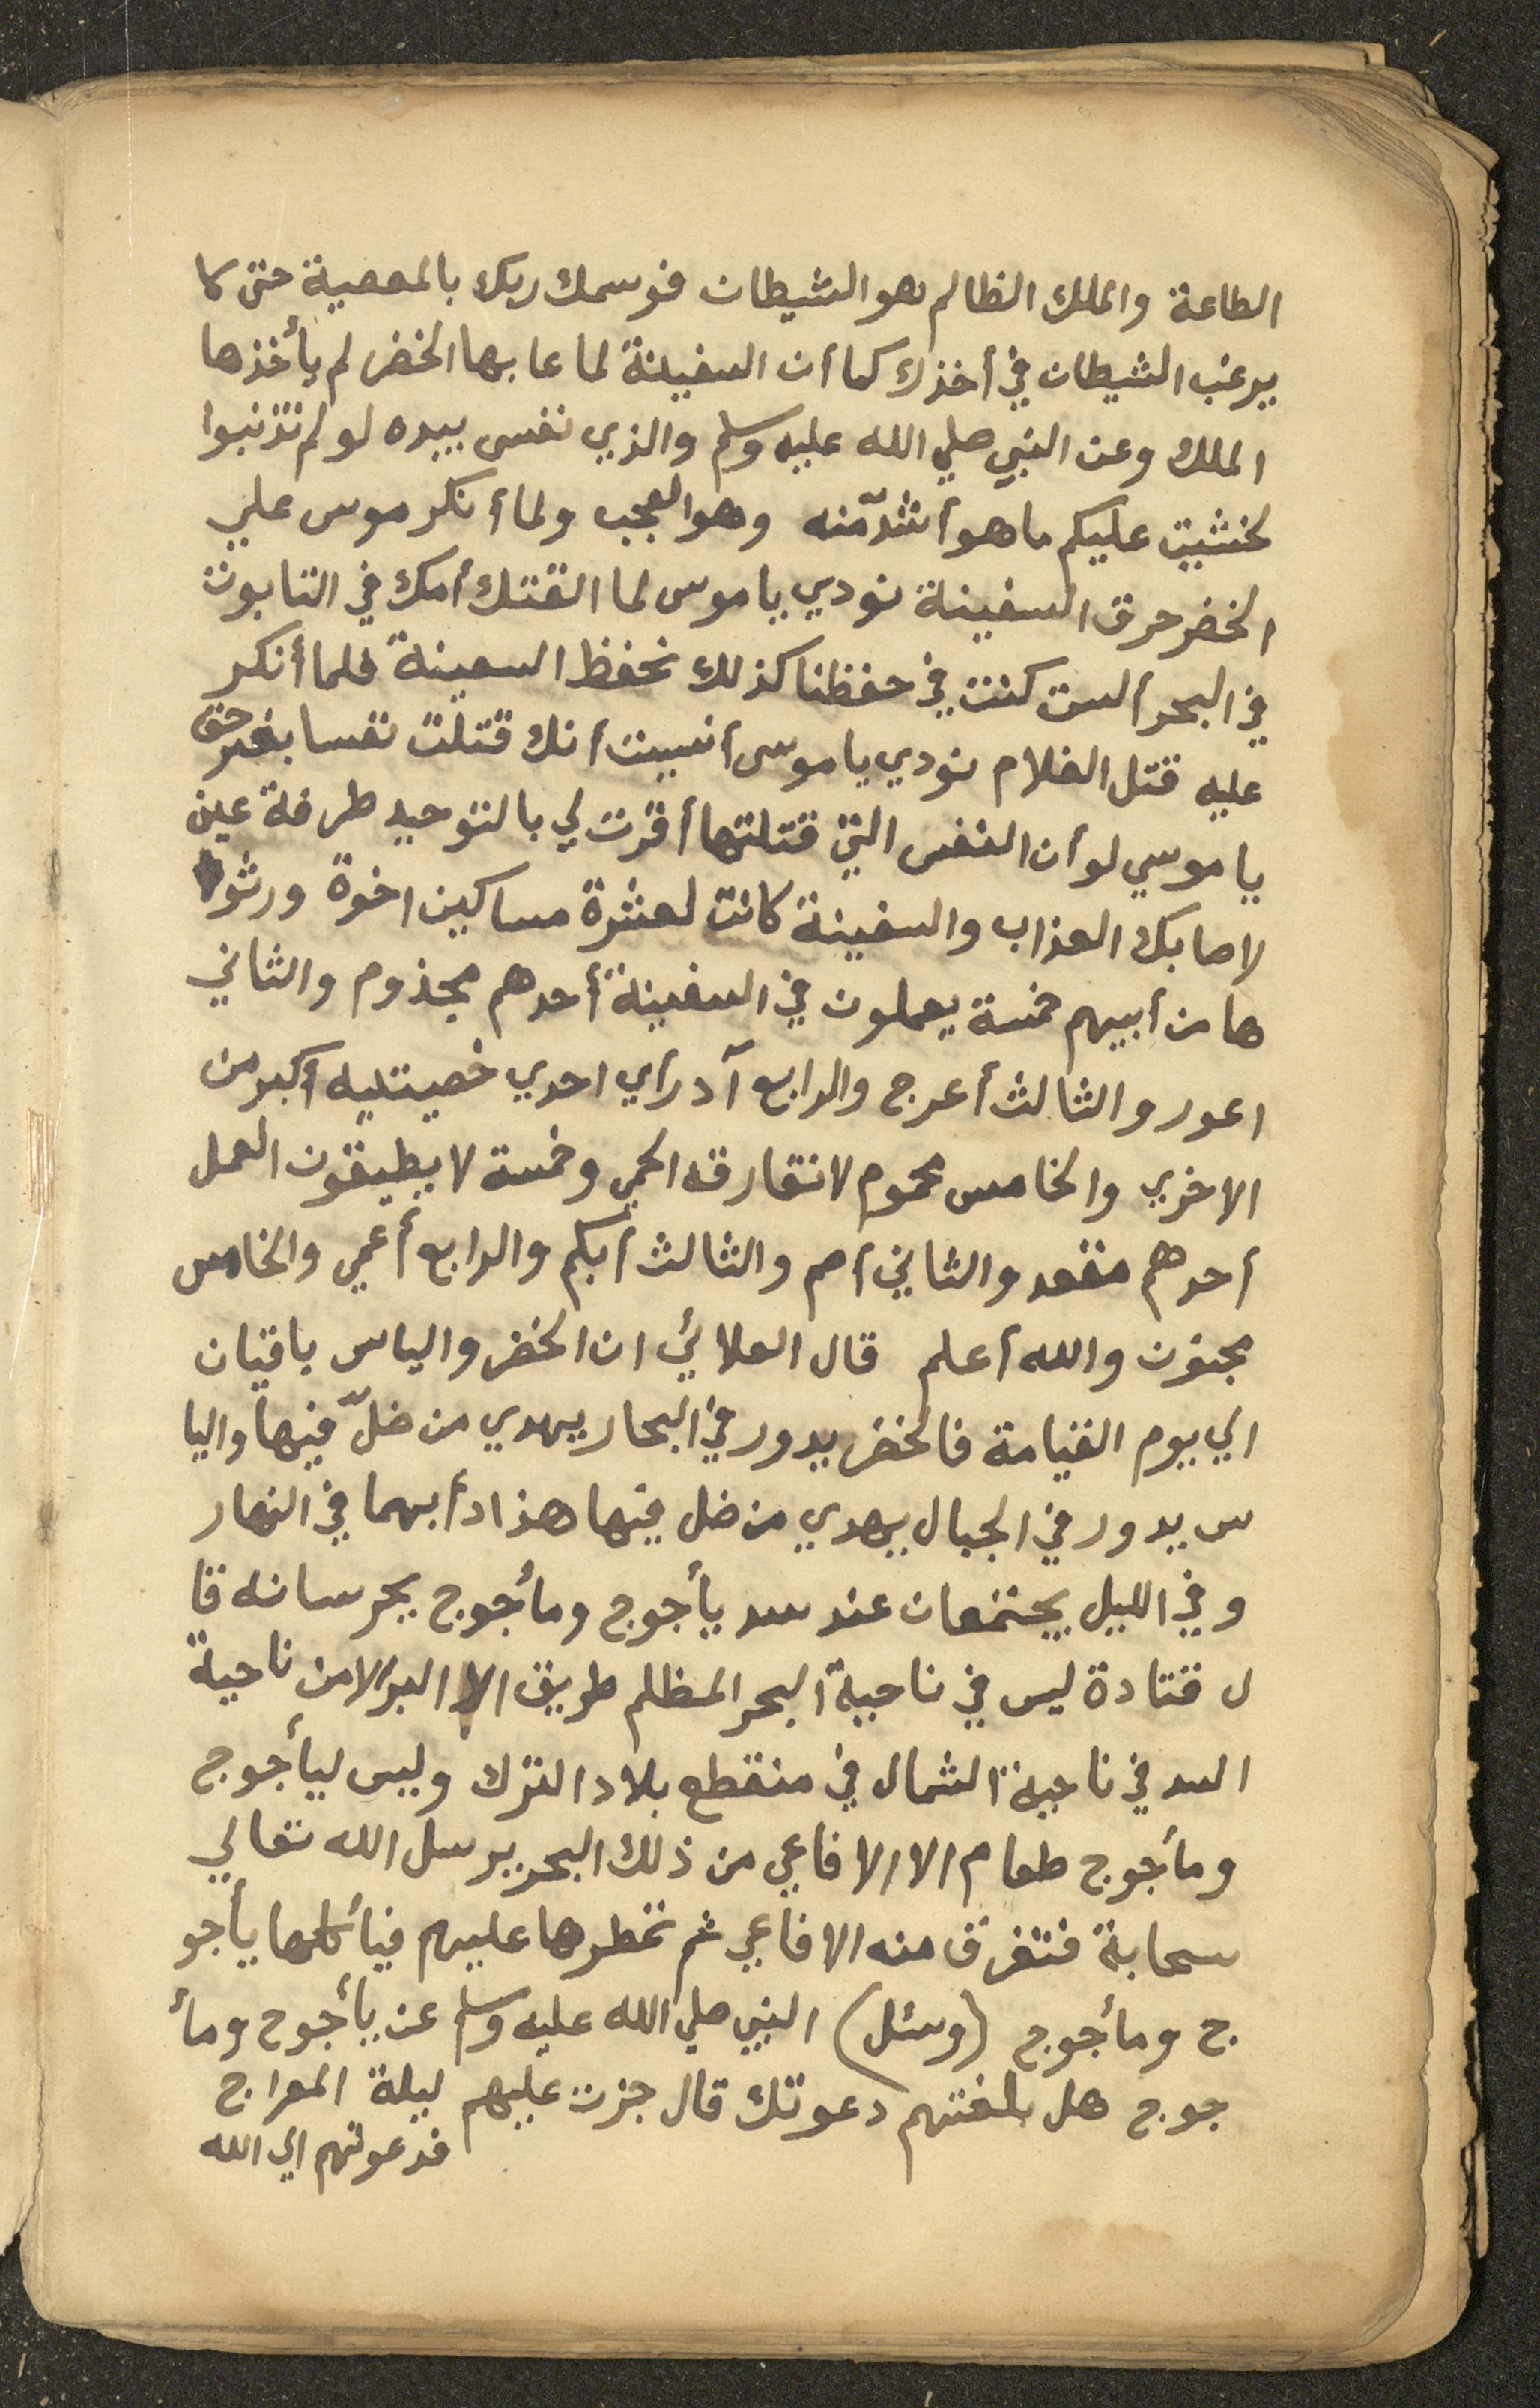 الطاعة والملك الظالم هو الشيطان فوسمك ربك بالمعصية حتى لا
يرغب الشيطان في أخذك كما أن السفينة لما عابها الخضر لم يأخذها
الملك وعن النبي صلي الله عليه وسلم والذي نفسي بيده لو لم تذنبوا
لخشيت عليكم ما هو أشدّ منه وهو العجب ولما أنكر موسى علي
الخضر خرق السفينة نودي يا موسى لما القتك أمك في التابوت
في البحر ألست كنت في حفظنا كذلك نحفظ السفينة فلما أنكر
عليه قتل الغلام نودي يا موسى أنسيت أنك قتلت نفسا بغير حق
يا موسي لو أن النفس التي قتلتها أقرت لي بالتوحيد طرفة عين
لاصابك العذاب والسفينة كانت لعشرة مساكين اخوة ورثو
ها من أبيهم خمسة يعملون في السفينة أحدهم مجذوم والثاني
اعور والثالث أعرج والرابع آدر أي احدي خصيتيه أكبر من
الاخري والخامس محموم لا تفارقه الحمي وخمسة لا يطيقون العمل
أحدهم مقعد والثاني أصم والثالث أبكم والرابع أعمي والخامس
مجنون والله أعلم قال العلائي ان الخضر والياس باقيان
الي يوم القيامة فالخضر يدور في البحار يهدي من ضلّ فيها واليا
س يدور في الجبال يهدي من ضل فيها هذا دأبهما في النهار
وفي الليل يجتمعان عند سد يأجوج ومأجوج يحرسانه قا
ل قتادة ليس في ناحية البحر المظلم طريق الا البر الا من ناحية
السد في ناحية الشمال في منقطع بلاد الترك وليس ليأجوج
ومأجوج طعام الا الافاعي من ذلك البحر يرسل الله تعالي
سحابة فتغرف منه الافاعي ثم تمطرها عليهم فيأكلها يأجو
ج ومأجوج (وسئل) النبي صلي الله عليه وسلم عن يأجوج ومأ
جوج هل بلغتهم دعوتك قال جزت عليهم ليلة المعراج
فدعوتهم الي الله